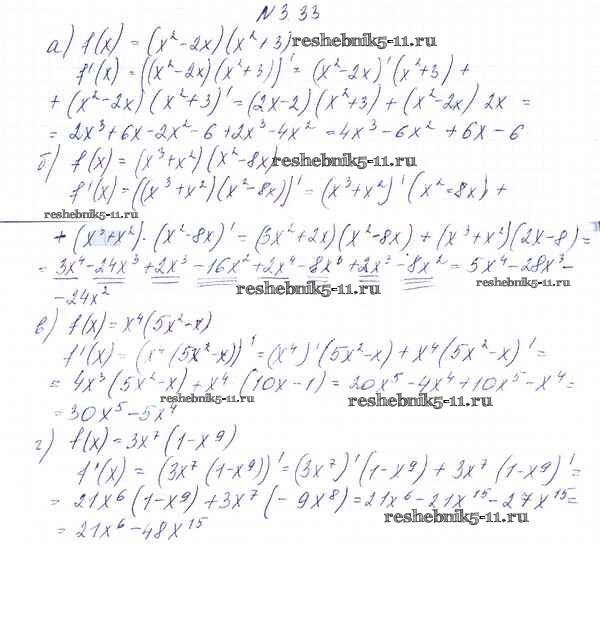 N 3.33
а) f(x) = (x²-2x)(x²+3) reshebnik5-11.ru
f'(x) = ((x²-2x)(x²+3))' = (x²-2x)'(x²+3) +
+ (x²-2x)(x²+3)' = (2x-2)(x²+3) + (x²-2x) 2x =
= 2x³+6x-2x²-6+2x³-4x² = 4x³-6x²+6x-6
б) f(x) = (x³+x²)(x²-8x) reshebnik5-11.ru
f'(x) = ((x³+x²)(x²-8x))' = (x³+x²)'(x²-8x) +
reshebnik5-11.ru
+ (x³+x²)·(x²-8x)' = (3x²+2x)(x²-8x) + (x³+x²)(2x-8) =
= 3x⁴-24x³+2x³-16x²+2x⁴-8x³+2x³-8x² = 5x⁴-28x³-
reshebnik5-11.ru reshebnik5-11.ru
-24x²
в) f(x) = x⁴(5x²-x)
f'(x) = (x⁴(5x²-x))' = (x⁴)'(5x²-x) + x⁴(5x²-x)' =
= 4x³(5x²-x) + x⁴(10x-1) = 20x⁵-4x⁴+10x⁵-x⁴ =
reshebnik5-11.ru reshebnik5-11.ru
= 30x⁵-5x⁴
г) f(x) = 3x⁷(1-x⁹)
f'(x) = (3x⁷(1-x⁹))' = (3x⁷)'(1-x⁹) + 3x⁷(1-x⁹)' =
= 21x⁶(1-x⁹) + 3x⁷(-9x⁸) = 21x⁶-21x¹⁵-27x¹⁵ =
reshebnik5-11.ru
= 21x⁶-48x¹⁵